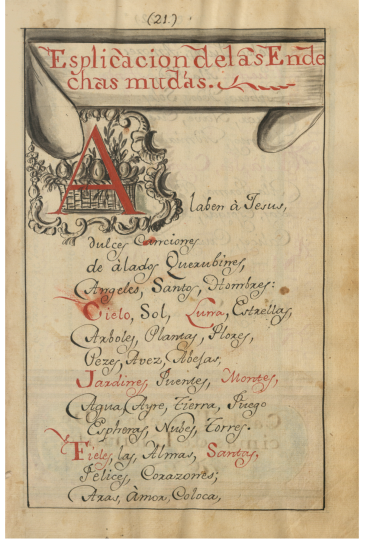 (21.)
Esplicacion de las Ende
chas mudas.
Alaben à Jesus,
dulces Canciones
de àlados Querubines,
Angeles, Santos, Hombres:
Cielo, Sol, Luna, Estrellas,
Arboles, Plantas, Flores,
Pezes, Avez, Abejas;
Jardines, Fuentes, Montes,
Agua, Ayre, Tierra, Fuego
Espheras, Nubes, Torres.
Fieles, las, Almas, Santas,
Felices, Corazones;
Aras, Àmor, Coloca,